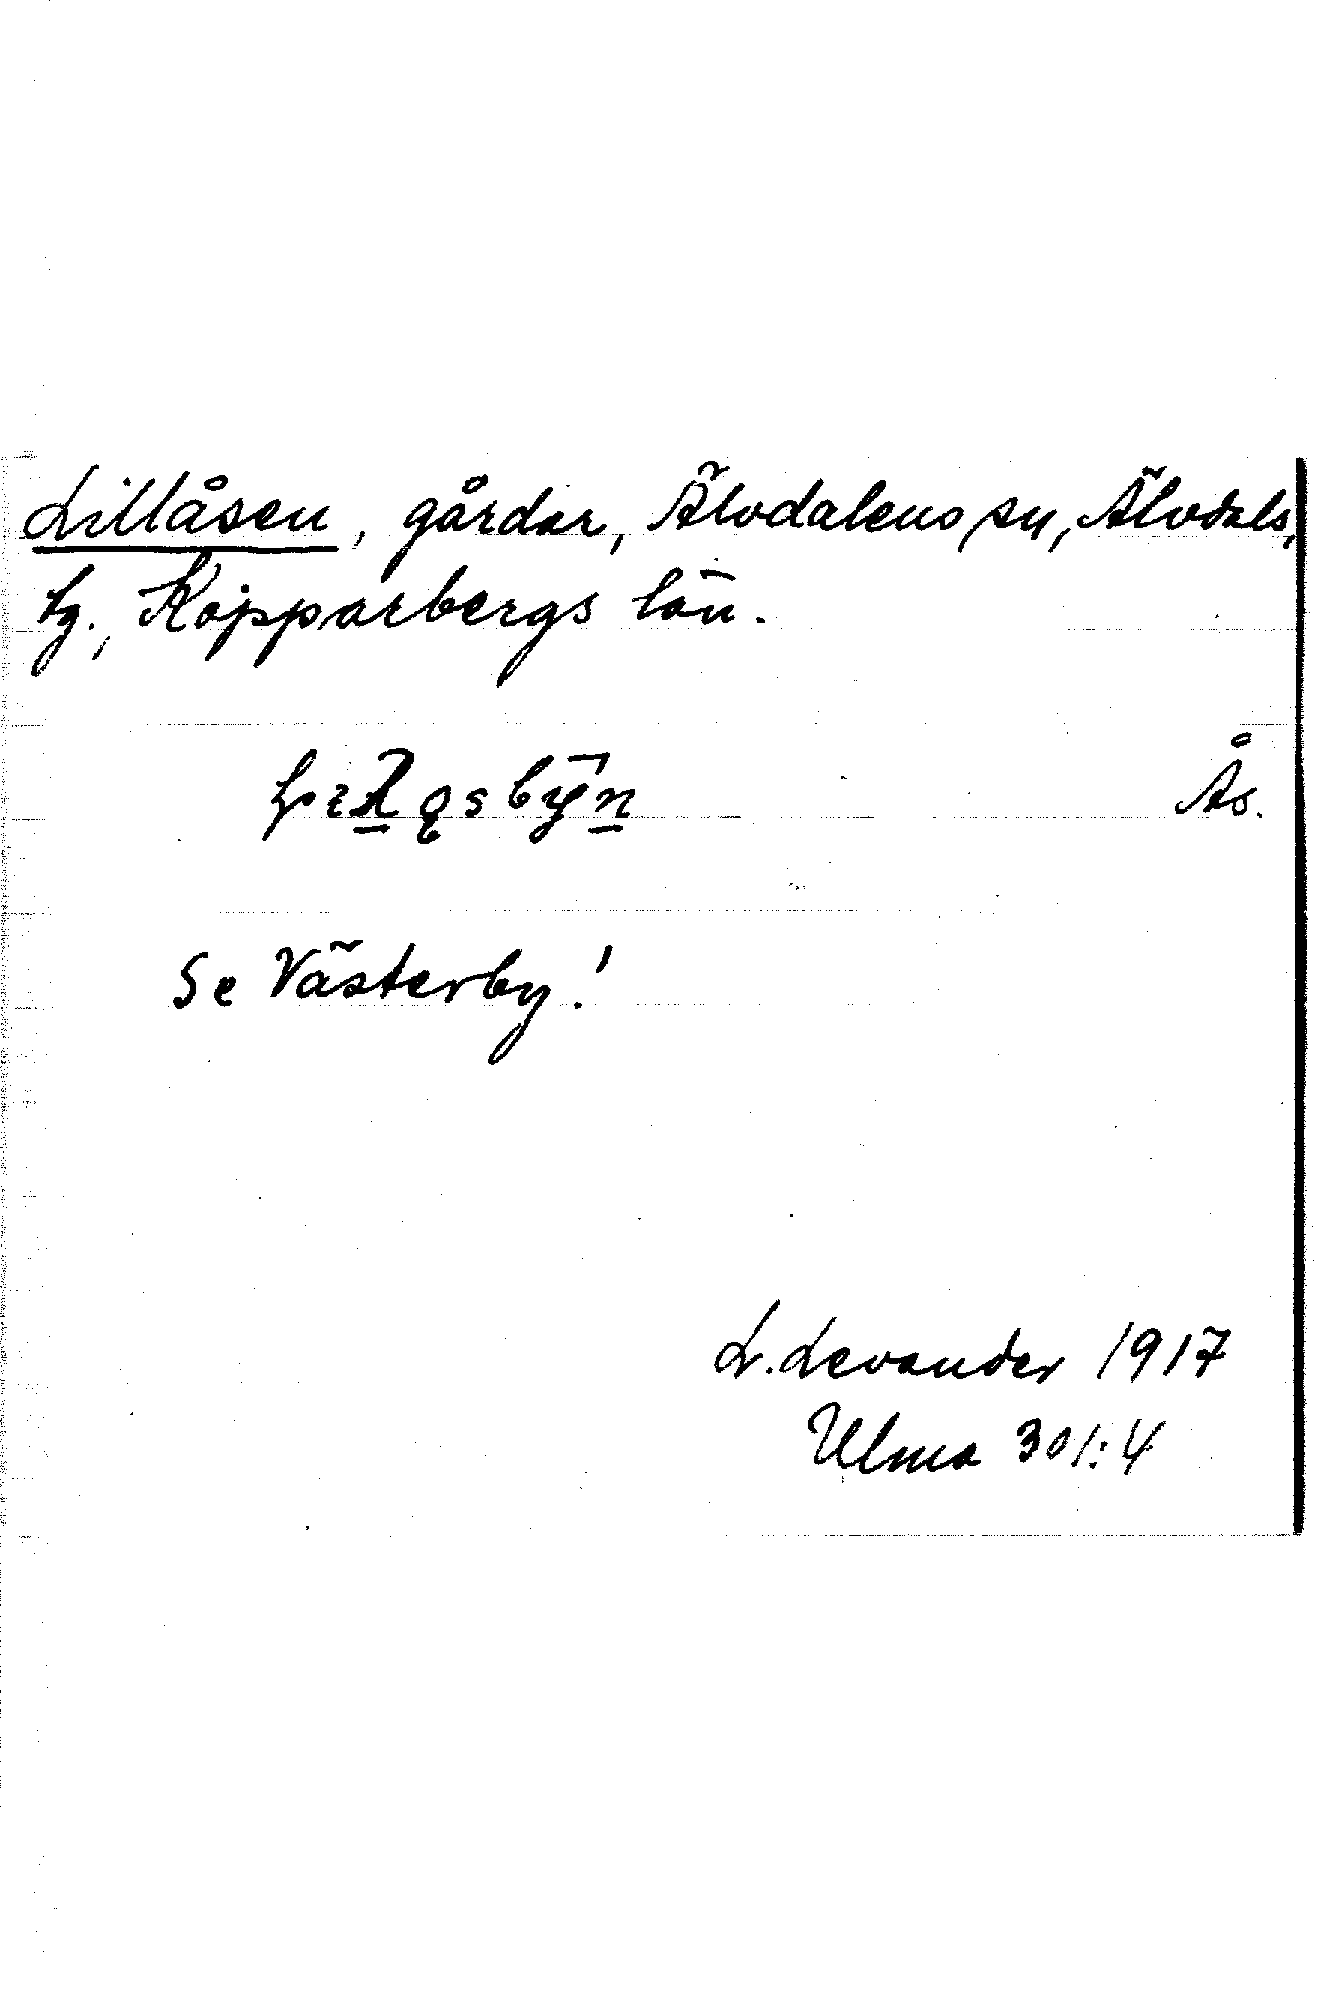 Lillåsen, gårdar, Älvdalens sn, Älvdals,
tg., Kopparbergs län.
Ås.
Se Västerby!
L. Levander 1917
Ulma 301:4